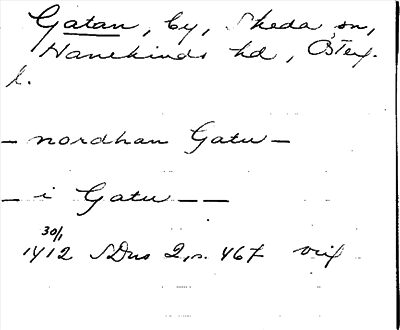 Gatan, by, Skeda sn,
Hanekinds hd, Österg.
l.
– nordhan Gatu –
– i Gatu – –
30/1
1412 SDns 2, s. 467 orig